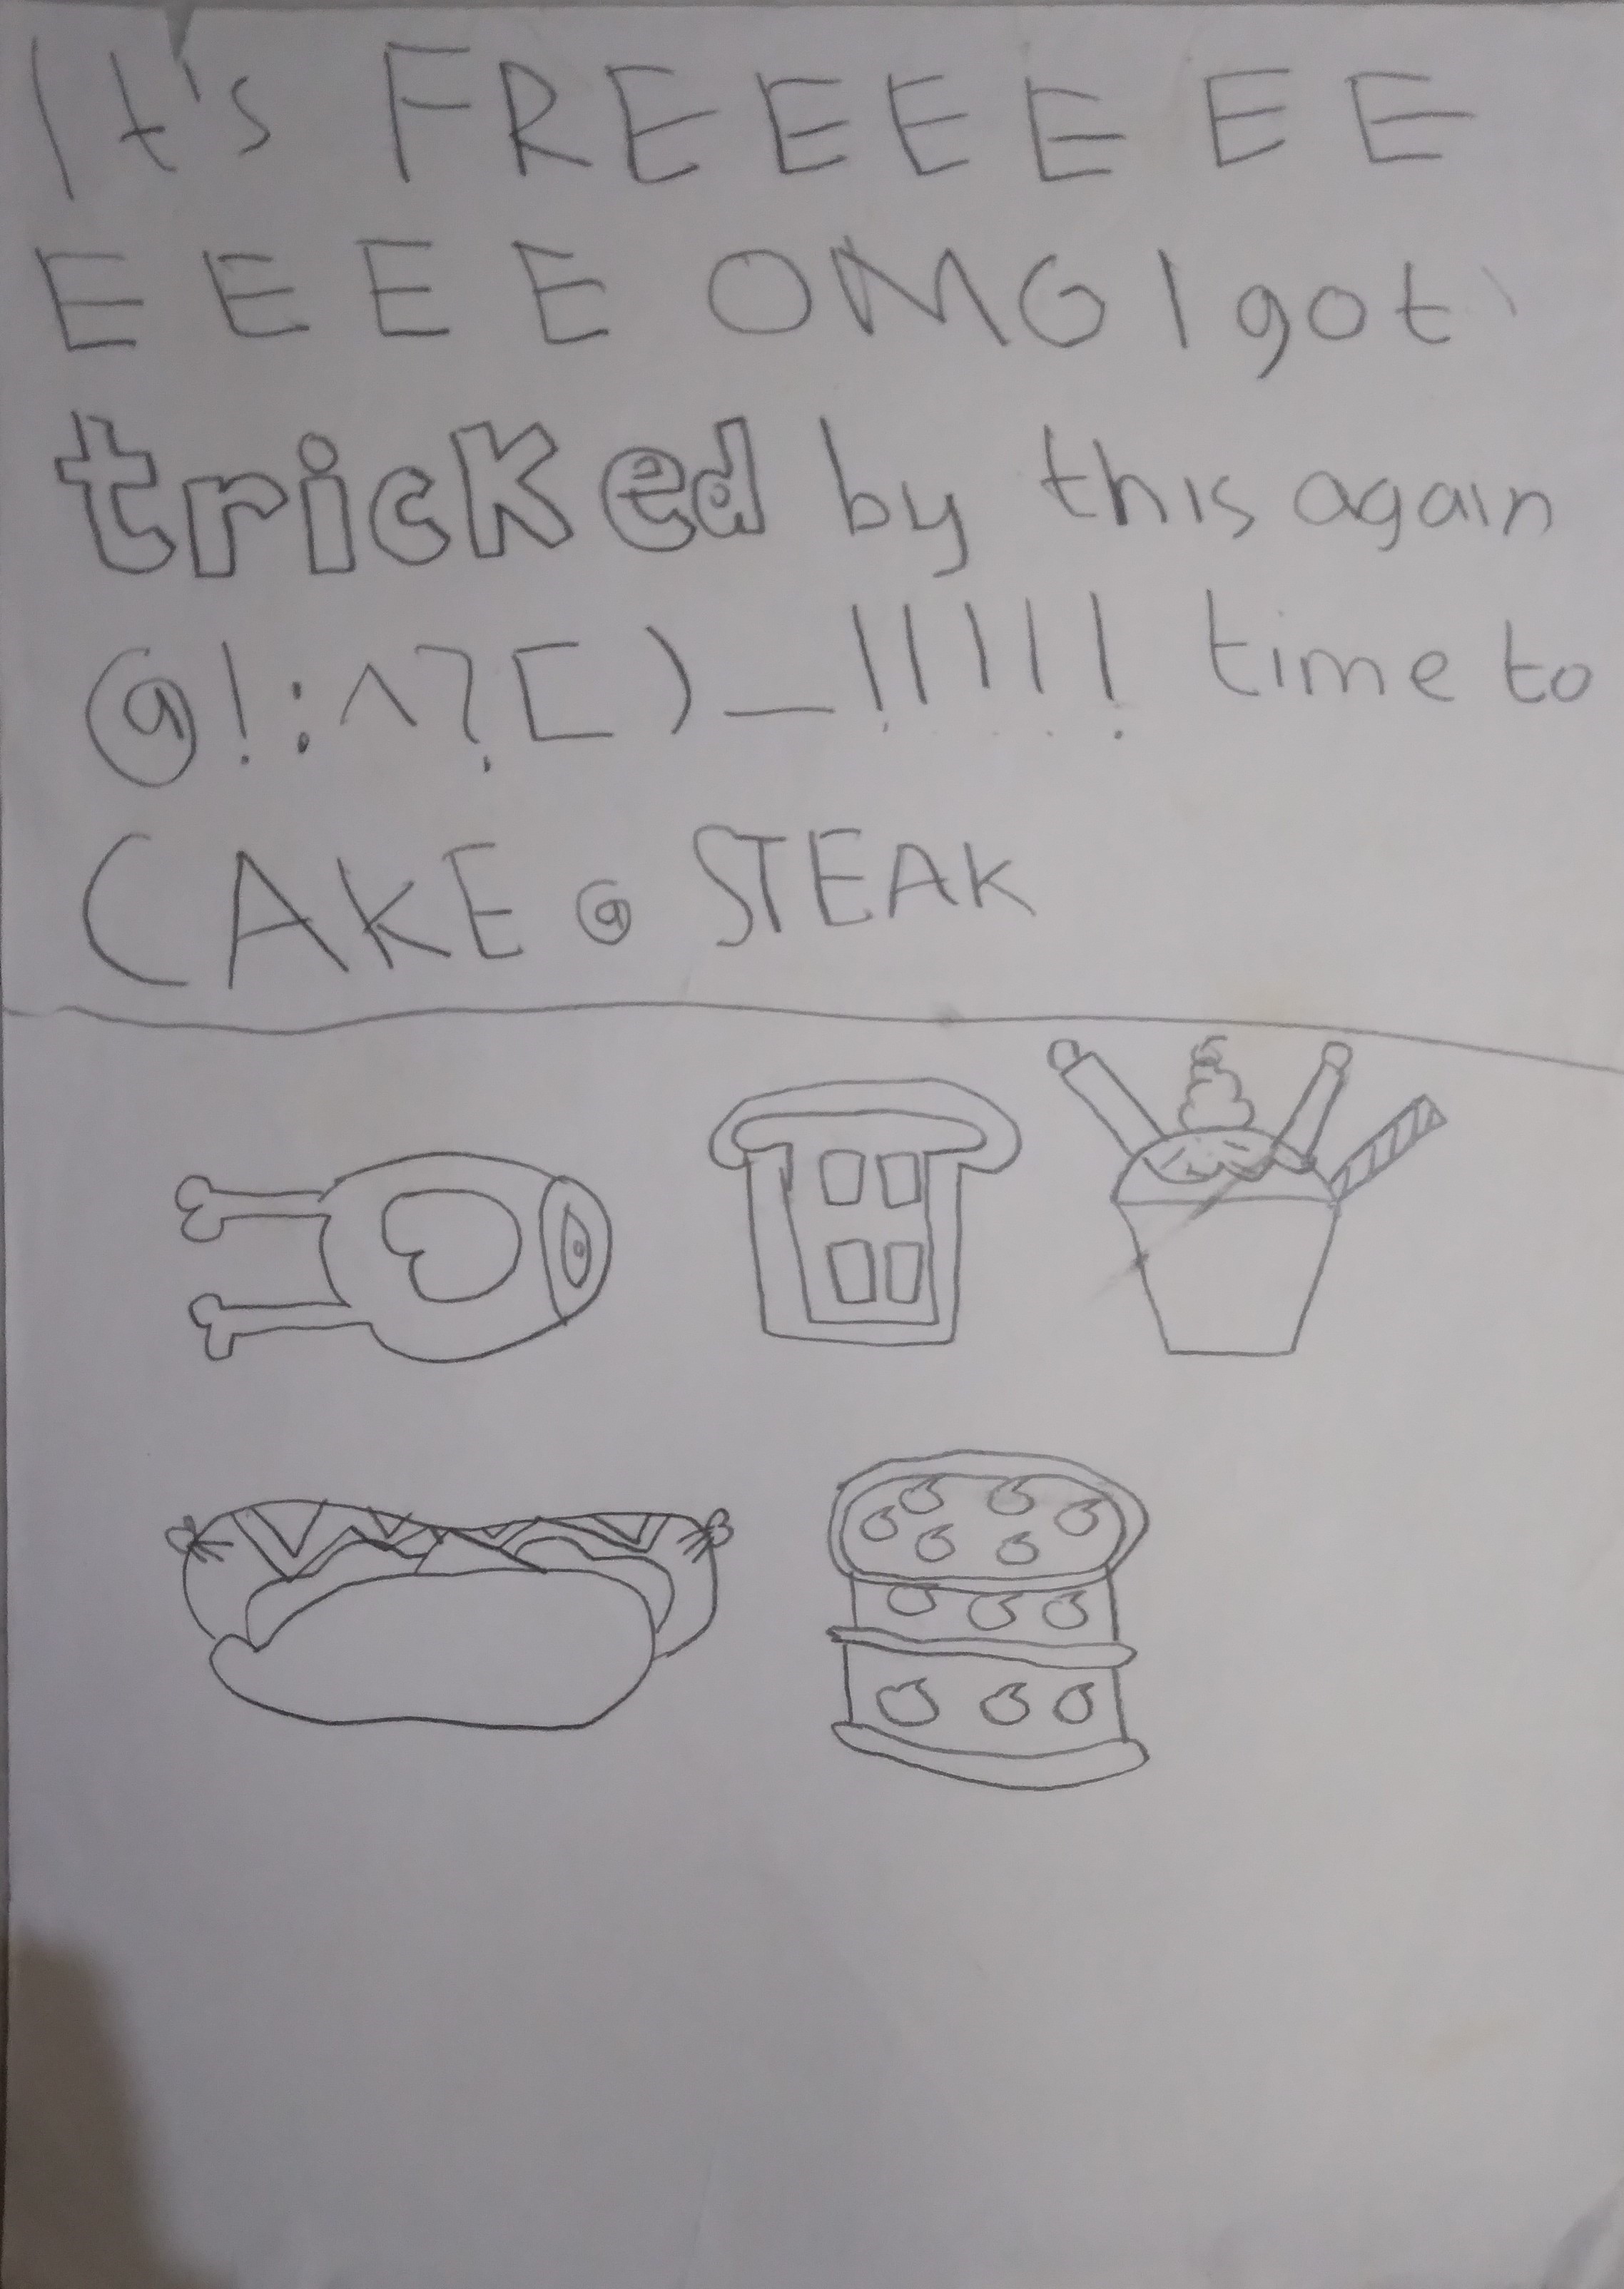 It's FREEEEEE
EEEE OMG I got
tricked by this again
@!:^?[)_!!!!! time to
CAKE @ STEAK